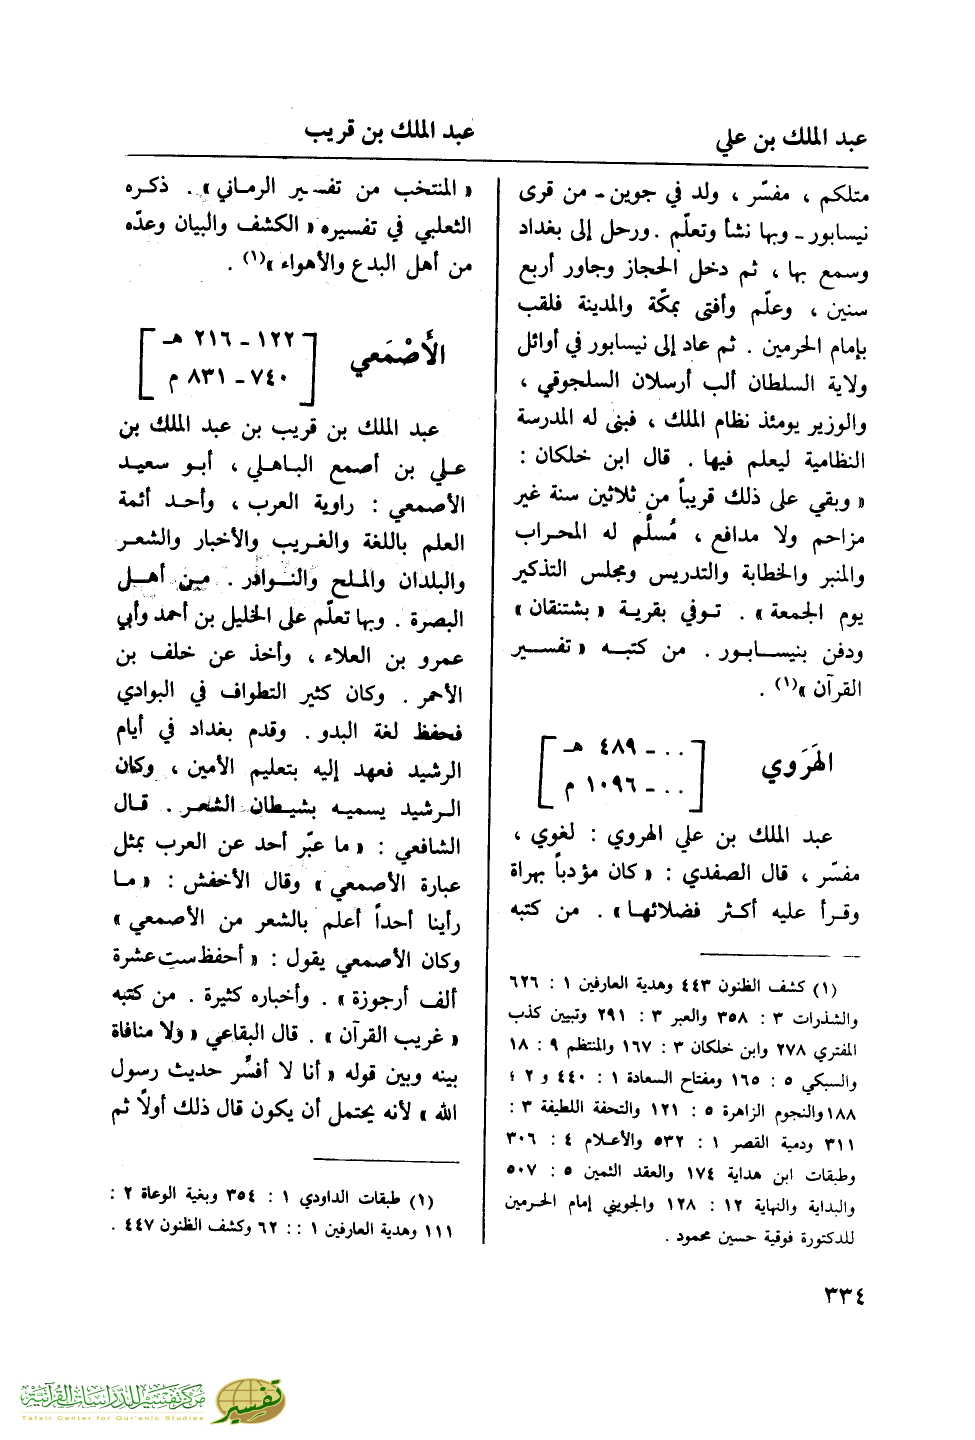 عبد الملك بن علي
عبد الملك بن قريب
متلكم ، مفسّر ، ولد في جوين ـ من قرى
نيسابور ـ وبها نشأ وتعلّم . ورحل إلى بغداد
وسمع بها ، ثم دخل الحجاز وجاور أربع
سنين ، وعلّم وأفتى بمكّة والمدينة فلقب
بإمام الحرمين . ثم عاد إلى نيسابور في أوائل
ولاية السلطان ألب أرسلان السلجوقي ،
والوزير يومئذ نظام الملك ، فبنى له المدرسة
النظامية ليعلم فيها . قال ابن خلكان :
« وبقي على ذلك قريباً من ثلاثين سنة غير
مزاحم ولا مدافع ، مُسلَّم له المحراب
والمنبر والخطابة والتدريس ومجلس التذكير
يوم الجمعة » . توفي بقرية « بشتنقان »
ودفن بنيسابور . من كتبه « تفسير
القرآن »(١) .
الهَرَوي
[ .. ـ ٤٨٩ هـ
.. ـ ١٠٩٦ م ]
عبد الملك بن علي الهروي : لغوي ،
مفسّر ، قال الصفدي : « كان مؤدباً بهراة
وقرأ عليه أكثر فضلائها » . من كتبه
(١) كشف الظنون ٤٤٣ وهدية العارفين ١ : ٦٢٦
والشذرات ٣ : ٣٥٨ والعبر ٣ : ٢٩١ وتبيين كذب
المفتري ٢٧٨ وابن خلكان ٣ : ١٦٧ والمنتظم ٩ : ١٨
والسبكي ٥ : ١٦٥ ومفتاح السعادة ١ : ٤٤٠ و ٢ ؛
١٨٨ والنجوم الزاهرة ٥ : ١٢١ والتحفة اللطيفة ٣ :
٣١١ ودمية القصر ١ : ٥٣٢ والأعلام ٤ : ٣٠٦
وطبقات ابن هداية ١٧٤ والعقد الثمين ٥ : ٥٠٧
والبداية والنهاية ١٢ : ١٢٨ والجويني إمام الحرمين
للدكتورة فوقية حسين محمود .
« المنتخب من تفسير الرماني » . ذكره
الثعلبي في تفسيره « الكشف والبيان وعدّه
من أهل البدع والأهواء »(١) .
الأَصْمَعي
[ ١٢٢ ـ ٢١٦ هـ
٧٤٠ ـ ٨٣١ م ]
عبد الملك بن قريب بن عبد الملك بن
علي بن أصمع الباهلي ، أبو سعيد
الأصمعي : راوية العرب ، وأحد أئمة
العلم باللغة والغريب والأخبار والشعر
والبلدان والملح والنوادر . من أهل
البصرة . وبها تعلّم على الخليل بن أحمد وأبي
عمرو بن العلاء ، وأخذ عن خلف بن
الأحمر . وكان كثير التطواف في البوادي
فحفظ لغة البدو . وقدم بغداد في أيام
الرشيد فعهد إليه بتعليم الأمين ، وكان
الرشيد يسميه بشيطان الشعر . قال
الشافعي : « ما عبّر أحد عن العرب بمثل
عبارة الأصمعي » وقال الأخفش : « ما
رأينا أحداً أعلم بالشعر من الأصمعي »
وكان الأصمعي يقول : « أحفظ ست عشرة
ألف أرجوزة » . وأخباره كثيرة . من كتبه
« غريب القرآن » . قال البقاعي « ولا منافاة
بينه وبين قوله « أنا لا أفسِّر حديث رسول
الله » لأنه يحتمل أن يكون قال ذلك أولاً ثم
(١) طبقات الداودي ١ : ٣٥٤ وبغية الوعاة ٢ :
١١١ وهدية العارفين ١ : : ٦٢ وكشف الظنون ٤٤٧ .
٣٣٤
مركز تفسير للدراسات القرآنية
Tafsir Center for Qur'anic Studies
تفسير